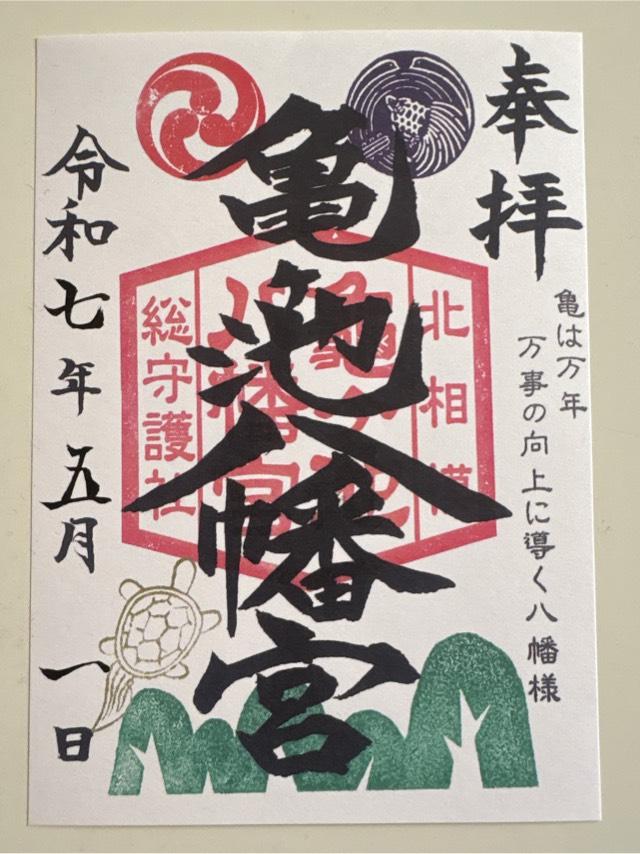 奉拝
亀は万年
万事の向上に導く八幡様
北相模
亀ヶ池
八幡宮
総守護社
亀池八幡宮
令和七年五月一日